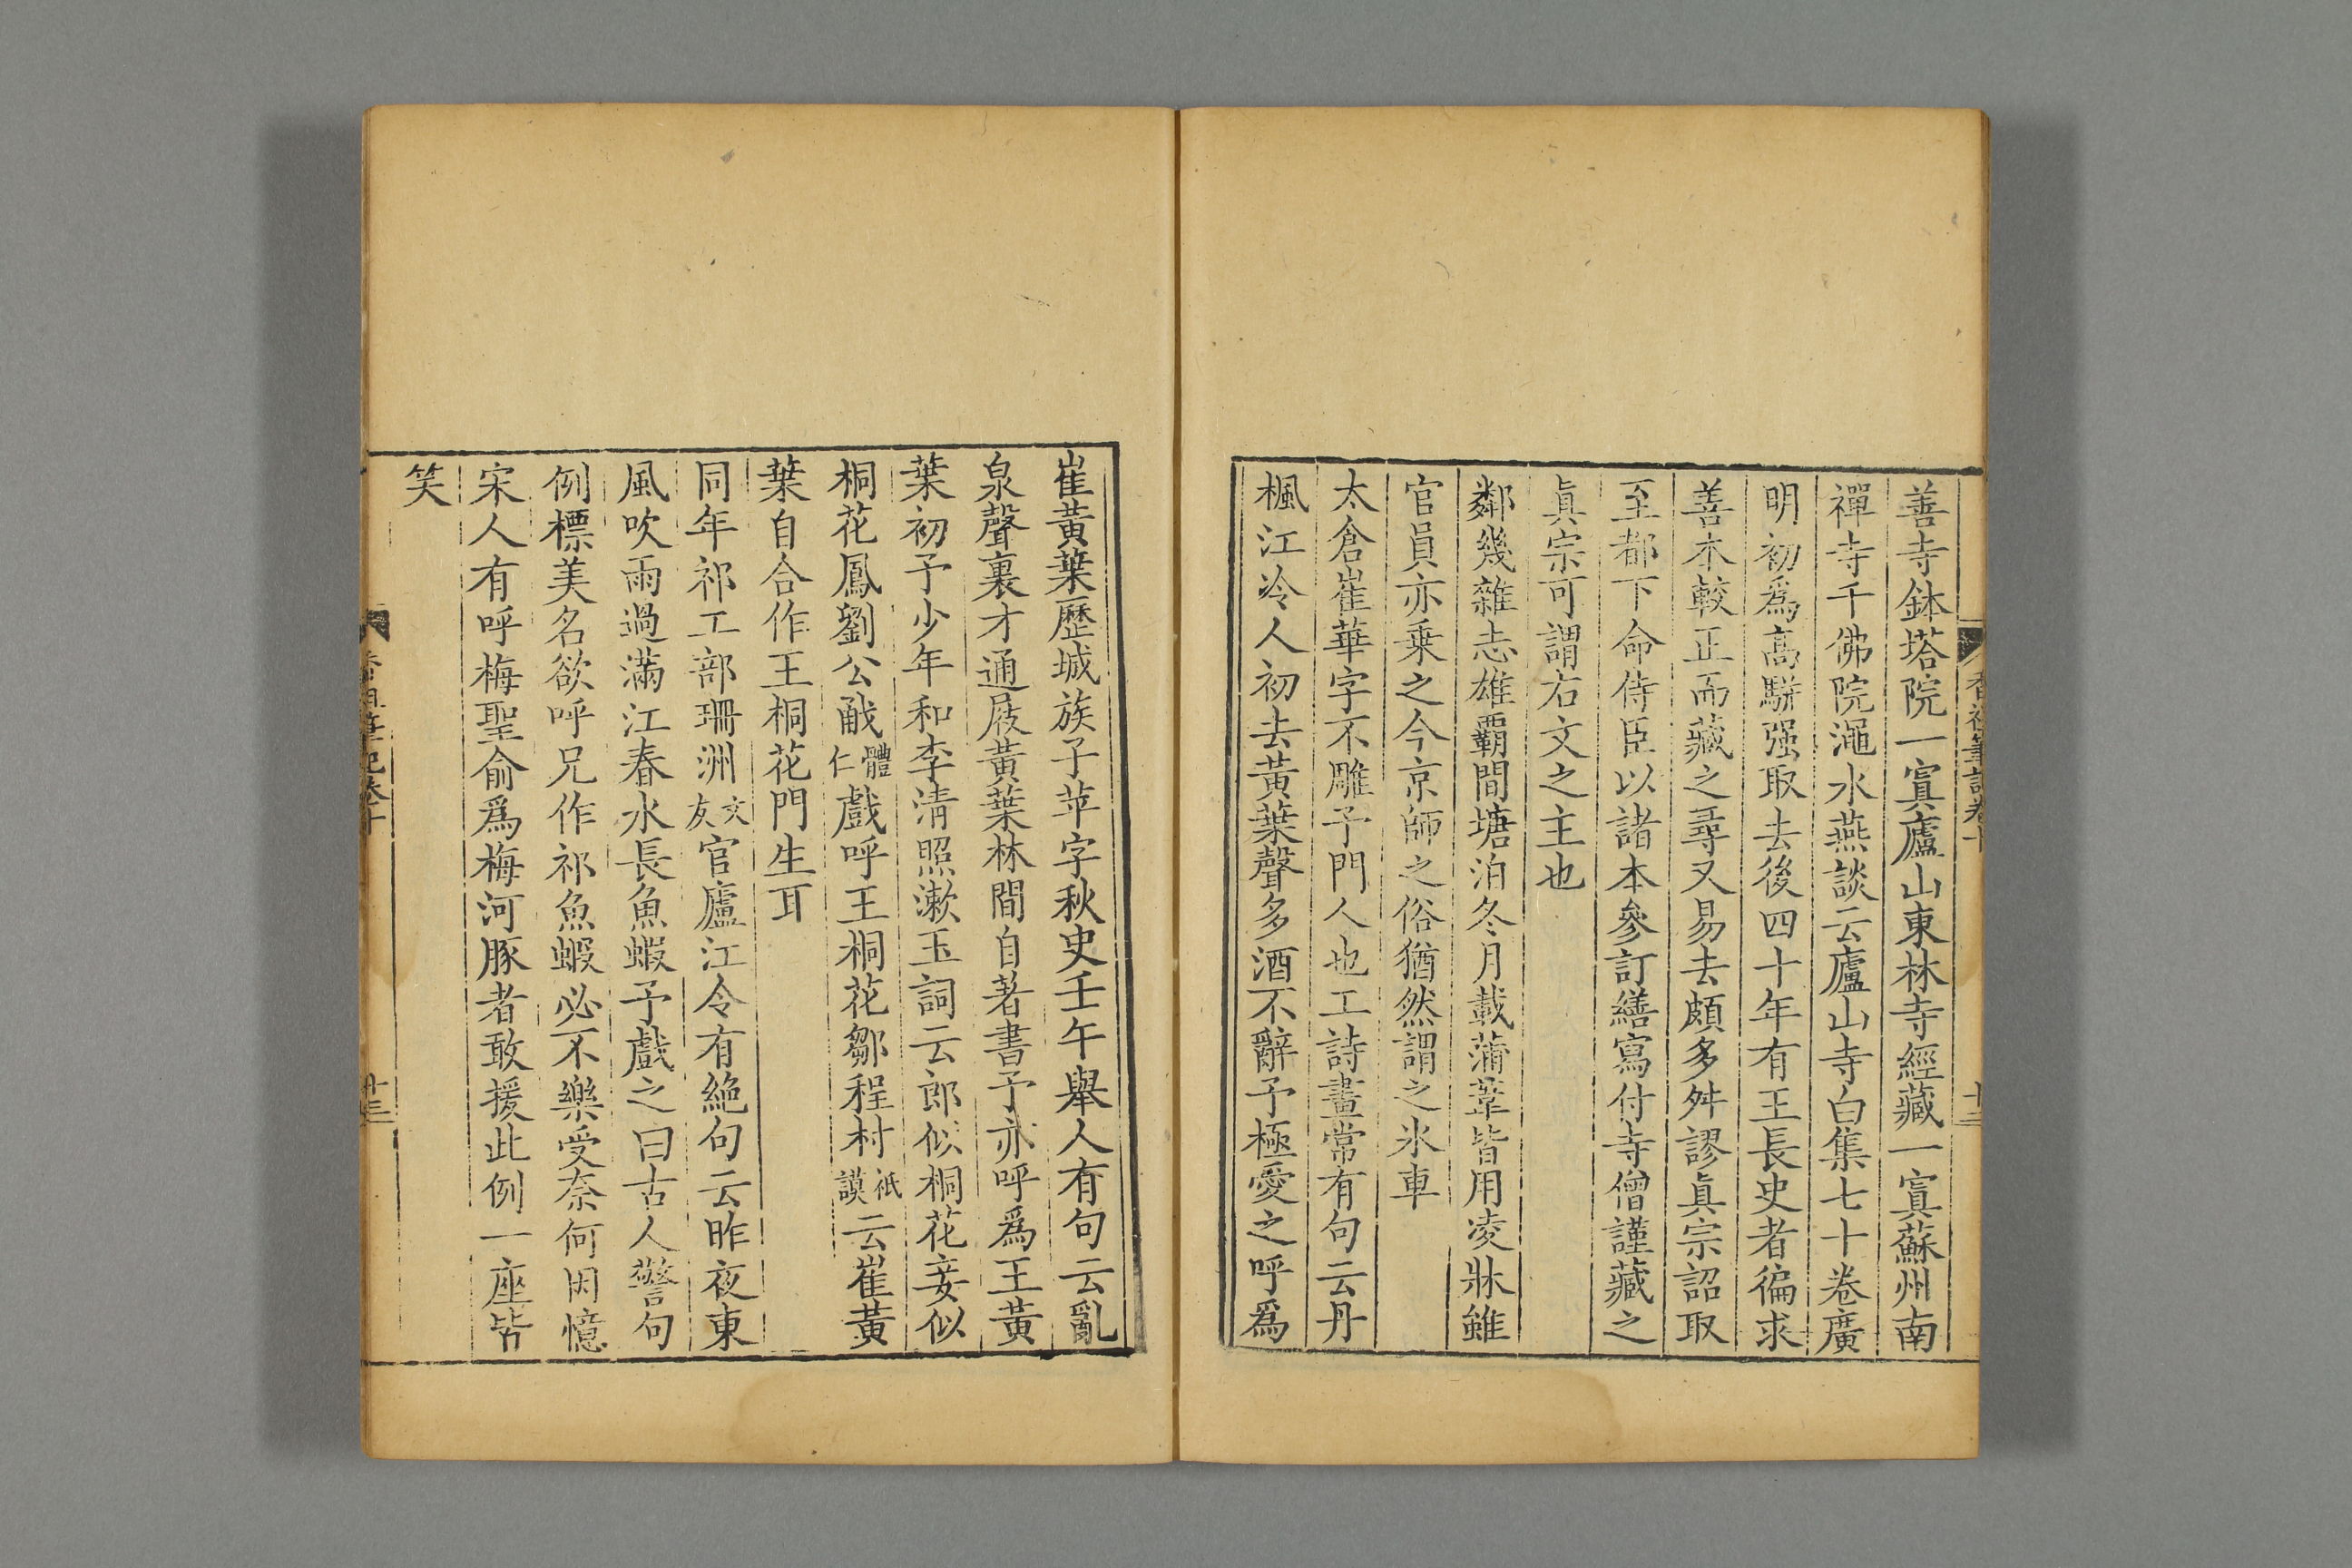 善寺鉢塔院一寘廬山東林寺經藏一寘蘇州南
禪寺千佛院澠水燕談云廬山寺白集七十卷廣
明初爲高駢强取去後四十年有王長史者徧求
善本較正而藏之尋又易去頗多舛謬眞宗詔取
至都下命侍臣以諸本參訂繕寫付寺僧謹藏之
眞宗可謂右文之主也
鄰幾雜志雄覇間塘泊冬月載蒲葦皆用凌牀雖
官員亦乗之今京師之俗猶然謂之氷車
太倉崔華字不雕予門人也工詩畫常有句云丹
楓江冷人初去黃葉聲多酒不辭予極愛之呼爲
香祖筆記卷十
十三
崔黃葉歷城族子苹字秋史壬午舉人有句云亂
泉聲裏才通屐黃葉林間自著書予亦呼爲王黃
葉初予少年和李清照漱玉詞云郎似桐花妾似
桐花鳳劉公㦷體仁戲呼王桐花鄒程村祇謨云崔黃
葉自合作王桐花門生耳
同年祁工部珊洲文友官廬江令有絶句云昨夜東
風吹雨過滿江春水長魚蝦予戲之曰古人警句
例標美名欲呼兄作祁魚蝦必不樂受奈何因憶
宋人有呼梅聖俞爲梅河豚者敢援此例一座皆
笑
香祖筆記卷十
十三